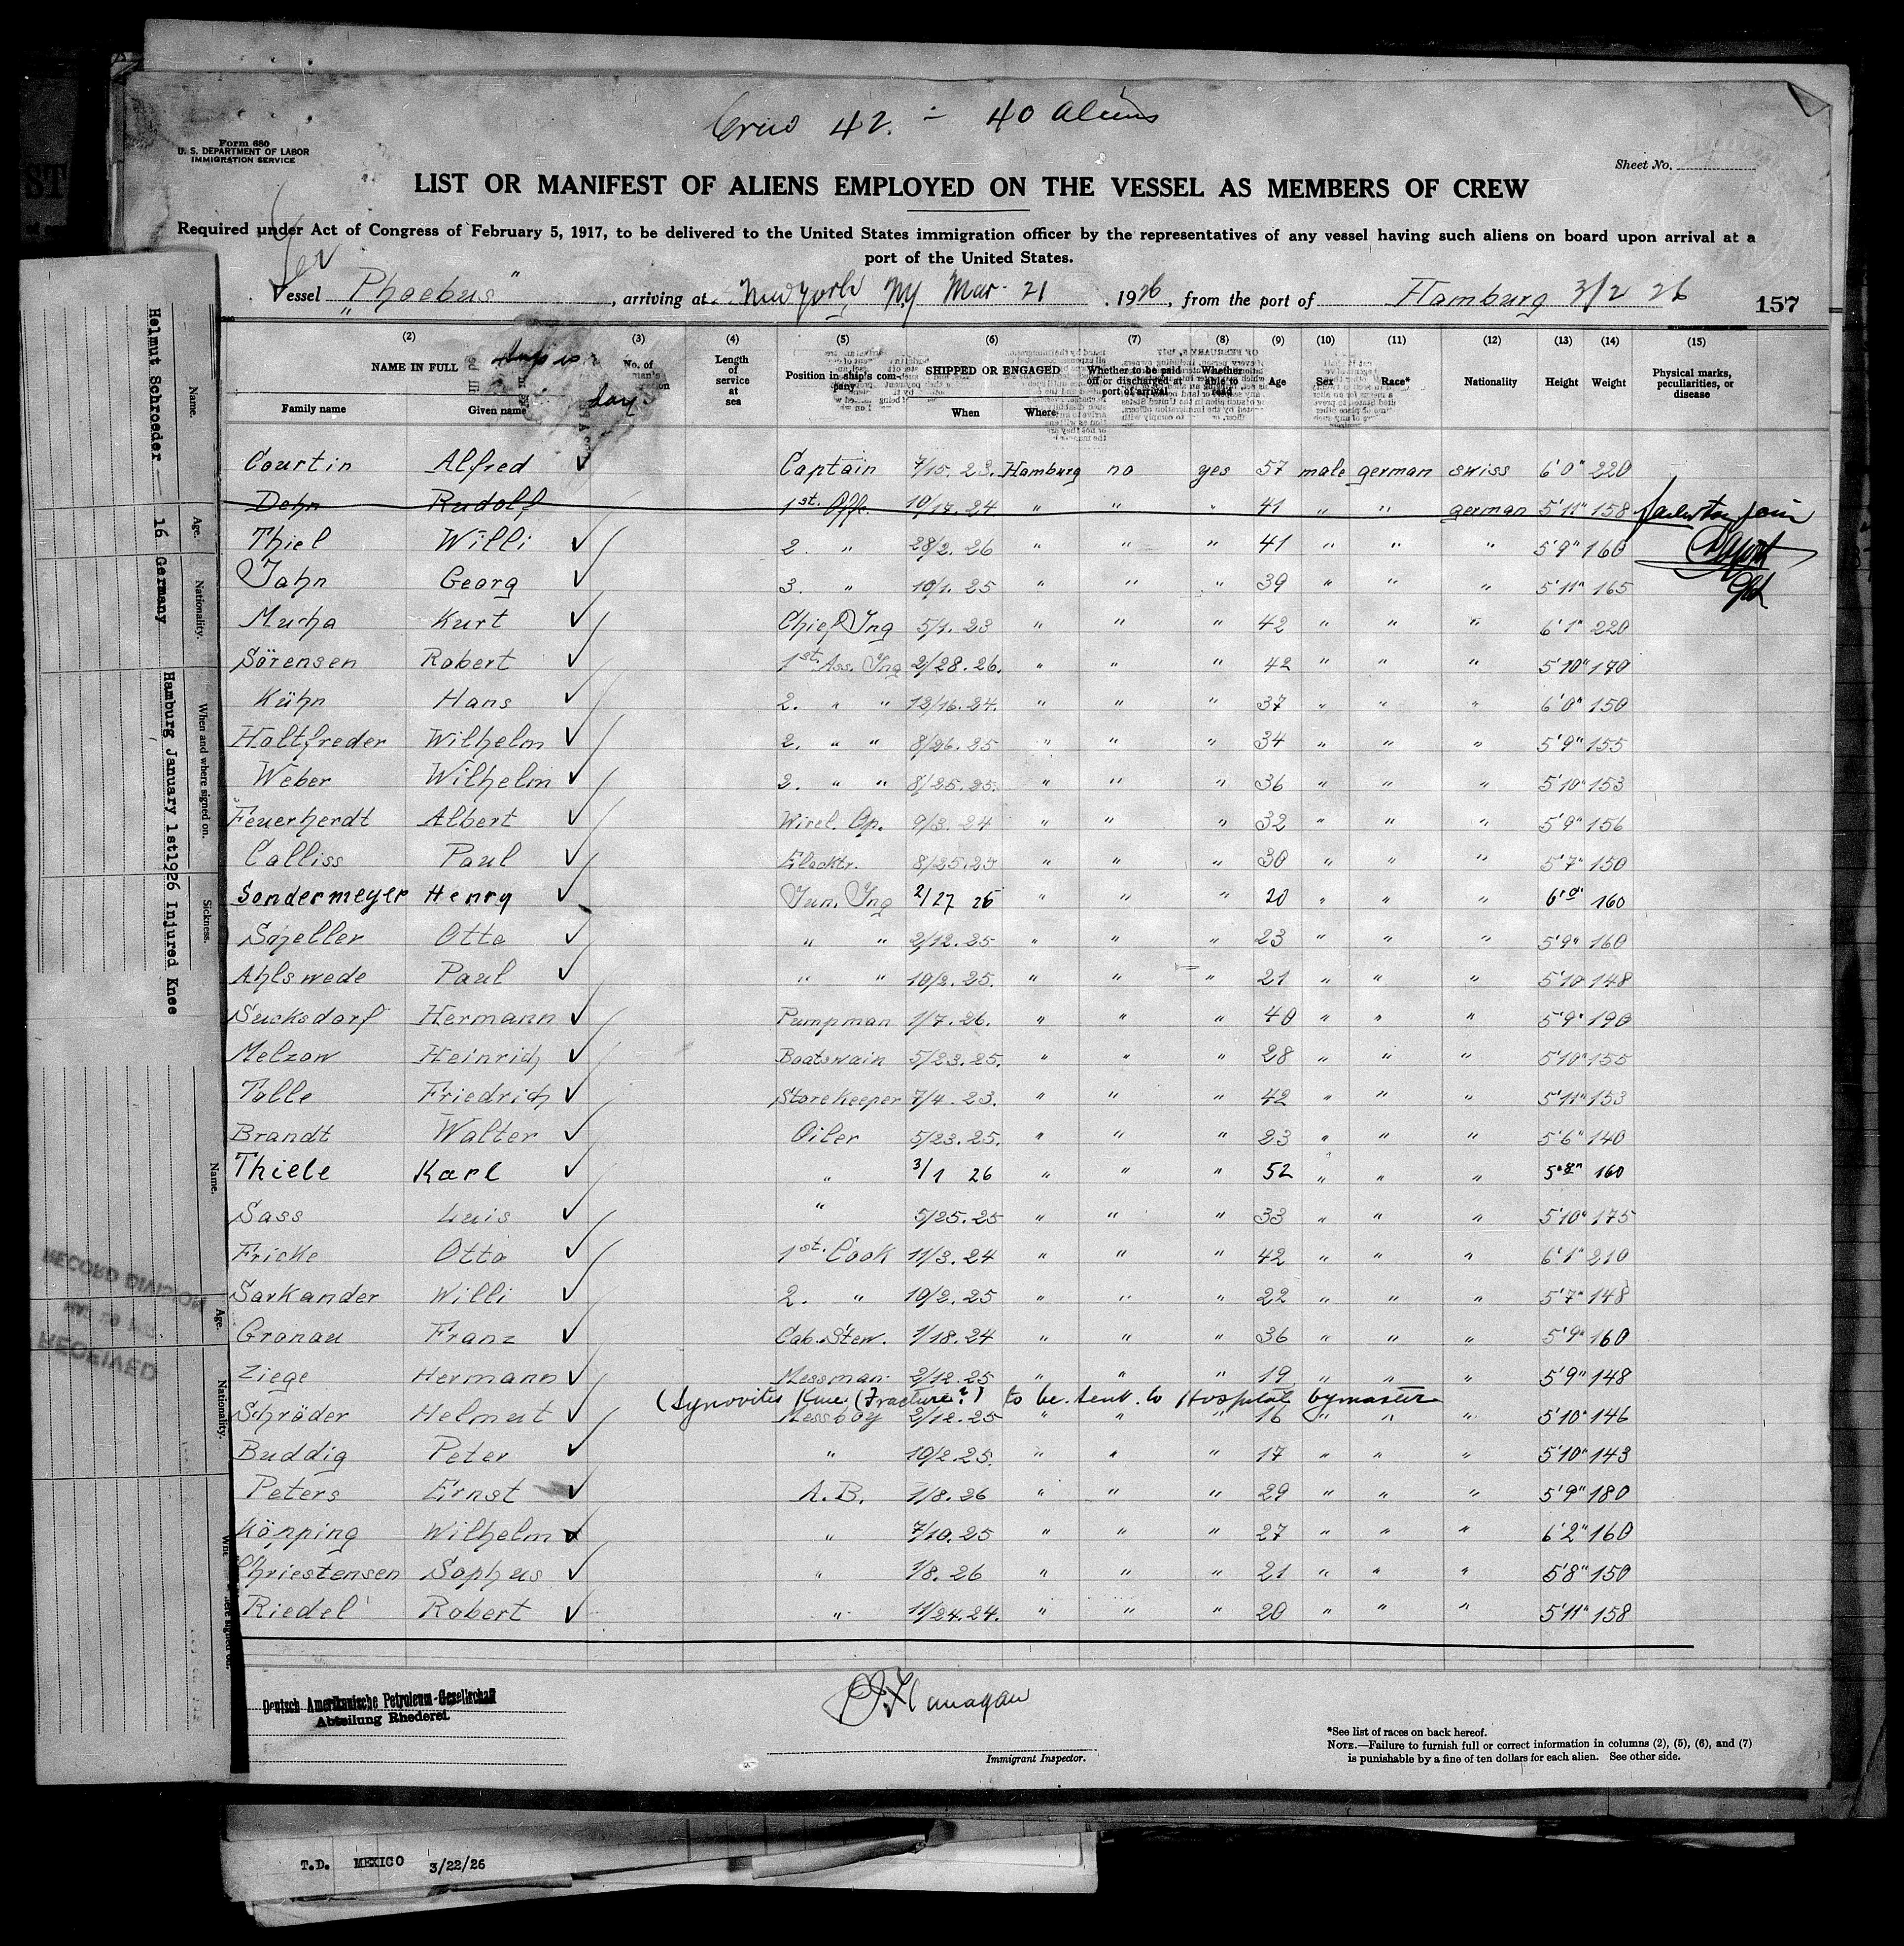 Crew 42. - 40 Aliens
Form 680
U. S. DEPARTMENT OF LABOR
IMMIGRATION SERVICE
Sheet No.
LIST OR MANIFEST OF ALIENS EMPLOYED ON THE VESSEL AS MEMBERS OF CREW
Required under Act of Congress of February 5, 1917, to be delivered to the United States immigration officer by the representatives of any vessel having such aliens on board upon arrival at a
port of the United States.
Ger
Vessel "Phoebus", arriving at New York NY Mar 21, 1926, from the port of Hamburg 3/2 26
157
(2) (3) (4) (5) (6) (7) (8) (9) (10) (11) (12) (13) (14) (15)
NAME IN FULL No. of Length of service at sea Position in ship's company SHIPPED OR ENGAGED Whether to be paid off or discharged at port of arrival Whether able to read Age Sex Race* Nationality Height Weight Physical marks, peculiarities, or disease
Family name Given name When Where
days
Courtin Alfred ✓ Captain 7/15. 23. Hamburg no yes 57 male german swiss 6'0" 220
Dehn Rudolf 1st. Offc. 10/14. 24 " " " 41 " " german 5'11" 158 failed to join
Thiel Willi ✓ 2. " 28/2. 26 " " " 41 " " " 5'9" 160
Jahn Georg ✓ 3. " 10/1. 25 " " " 39 " " " 5'11" 165
Mucha Kurt ✓ Chief Ing 5/1. 23 " " " 42 " " " 6'1" 220
Sörensen Robert ✓ 1st. Ass. Ing 2/28. 26. " " " 42 " " " 5'10" 190
Kühn Hans ✓ 2. " " 12/16. 24. " " " 37 " " " 6'0" 150
Holtfreder Wilhelm ✓ 2. " " 8/26. 25 " " " 34 " " " 5'9" 155
Weber Wilhelm ✓ 2. " " 8/25. 25. " " " 36 " " " 5'10" 153
Feuerherdt Albert ✓ Wirel. Op. 9/3. 24 " " " 32 " " " 5'9" 156
Calliss Paul ✓ Elecktr. 8/25. 25 " " " 30 " " " 5'7" 150
Sondermeyer Henry ✓ Jun. Ing 2/27 26 " " " 20 " " " 6'0" 160
Scheller Otto ✓ " " 2/12. 25 " " " 23 " " " 5'9" 160
Ahlswede Paul ✓ " " 10/2. 25. " " " 21 " " " 5'10 148
Sucksdorf Hermann ✓ Pumpman 1/7. 26. " " " 40 " " " 5'9" 190
Melzow Heinrich ✓ Boatswain 5/23. 25. " " " 28 " " " 5'10" 155
Tolle Friedrich ✓ Storekeeper 7/4. 23. " " " 42 " " " 5'11" 153
Brandt Walter ✓ Oiler 5/23. 25. " " " 23 " " " 5'6" 140
Thiele Karl ✓ " 3/1 26 " " " 52 " " " 5'8" 160
Sass Luis ✓ " 5/25. 25 " " " 33 " " " 5'10" 175
Fricke Otto ✓ 1st. Cook 11/3. 24 " " " 42 " " " 6'1" 210
Sarkander Willi ✓ 2. " 10/2. 25 " " " 22 " " " 5'7" 148
Gronau Franz ✓ Cab. Stew. 1/18. 24 " " " 36 " " " 5'9" 160
Ziege Hermann ✓ Messman. 2/12. 25 " " " 19 " " " 5'9" 148
(Synovitis Knee (Fracture?) to be sent to Hospital by master
Schröder Helmut ✓ Messboy 2/12. 25 " " " 16 " " " 5'10" 146
Buddig Peter ✓ " 10/2. 25. " " " 17 " " " 5'10" 143
Peters Ernst ✓ A. B. 1/8. 26 " " " 29 " " " 5'9" 180
Köpping Wilhelm ✓ " 7/10. 25 " " " 27 " " " 6'2" 160
Chriestensen Sophus ✓ " 1/8. 26 " " " 21 " " " 5'8" 150
Riedel Robert ✓ " 11/24. 24. " " " 20 " " " 5'11" 158
Deutsch Amerikanische Petroleum-Gesellschaft
Abteilung Rhederei.
Flanagan
Immigrant Inspector.
*See list of races on back hereof.
NOTE.—Failure to furnish full or correct information in columns (2), (5), (6), and (7)
is punishable by a fine of ten dollars for each alien. See other side.
Name. Age. Nationality. When and where signed on. Sickness.
Helmut Schroeder 16 Germany Hamburg January 1st1926 Injured Knee
Name. Age. Nationality.
RECORD DIVISION
RECEIVED
T.D. MEXICO 3/22/26